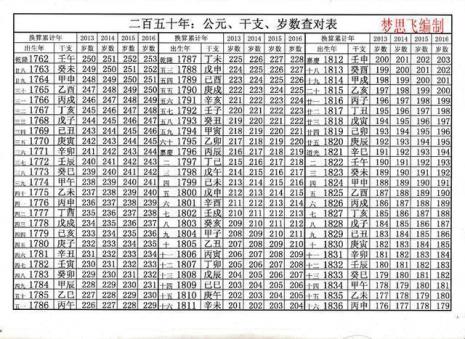 二百五十年：公元、干支、岁数查对表 梦思飞编制
换算累计年 2013 2014 2015 2016 换算累计年 2013 2014 2015 2016 换算累计年 2013 2014 2015 2016
出生年 干支 岁数 岁数 岁数 岁数 出生年 干支 岁数 岁数 岁数 岁数 出生年 干支 岁数 岁数 岁数 岁数
乾隆 1762 壬午 250 251 252 253 乾隆 1787 丁未 225 226 227 228 嘉慶 1812 壬申 200 201 202 203
廿八 1763 癸未 249 250 251 252 五三 1788 戊申 224 225 226 227 十八 1813 癸酉 199 200 201 202
廿九 1764 甲申 248 249 250 251 五四 1789 己酉 223 224 225 226 十九 1814 甲戌 198 199 200 201
三十 1765 乙酉 247 248 249 250 五五 1790 庚戌 222 223 224 225 二十 1815 乙亥 197 198 199 200
1766 丙戌 246 247 248 249 五六 1791 辛亥 221 222 223 224 廿一 1816 丙子 196 197 198 199
1767 丁亥 245 246 247 248 五七 1792 壬子 220 221 222 223 廿二 1817 丁丑 195 196 197 198
1768 戊子 244 245 246 247 五八 1793 癸丑 219 220 221 222 廿三 1818 戊寅 194 195 196 197
1769 己丑 243 244 245 246 五九 1794 甲寅 218 219 220 221 廿四 1819 己卯 193 194 195 196
1770 庚寅 242 243 244 245 六十 1795 乙卯 217 218 219 220 廿五 1820 庚辰 192 193 194 195
1771 辛卯 241 242 243 244 嘉慶 1796 丙辰 216 217 218 219 道光 1821 辛巳 191 192 193 194
1772 壬辰 240 241 242 243 二 1797 丁巳 215 216 217 218 二 1822 壬午 190 191 192 193
1773 癸巳 239 240 241 242 三 1798 戊午 214 215 216 217 三 1823 癸未 189 190 191 192
1774 甲午 238 239 240 241 四 1799 己未 213 214 215 216 四 1824 甲申 188 189 190 191
四十 1775 乙未 237 238 239 240 五 1800 庚申 212 213 214 215 五 1825 乙酉 187 188 189 190
四一 1776 丙申 236 237 238 239 六 1801 辛酉 211 212 213 214 六 1826 丙戌 186 187 188 189
四二 1777 丁酉 235 236 237 238 七 1802 壬戌 210 211 212 213 七 1827 丁亥 185 186 187 188
四三 1778 戊戌 234 235 236 237 八 1803 癸亥 209 210 211 212 八 1828 戊子 184 185 186 187
四四 1779 己亥 233 234 235 236 九 1804 甲子 208 209 210 211 九 1829 己丑 183 184 185 186
四五 1780 庚子 232 233 234 235 十 1805 乙丑 207 208 209 210 十 1830 庚寅 182 183 184 185
四六 1781 辛丑 231 232 233 234 十一 1806 丙寅 206 207 208 209 十一 1831 辛卯 181 182 183 184
四七 1782 壬寅 230 231 232 233 十二 1807 丁卯 205 206 207 208 十二 1832 壬辰 180 181 182 183
四八 1783 癸卯 229 230 231 232 十三 1808 戊辰 204 205 206 207 十三 1833 癸巳 179 180 181 182
四九 1784 甲辰 228 229 230 231 十四 1809 己巳 203 204 205 206 十四 1834 甲午 178 179 180 181
五十 1785 乙巳 227 228 229 230 十五 1810 庚午 202 203 204 205 十五 1835 乙未 177 178 179 180
五一 1786 丙午 226 227 228 229 十六 1811 辛未 201 202 203 204 十六 1836 丙申 176 177 178 179